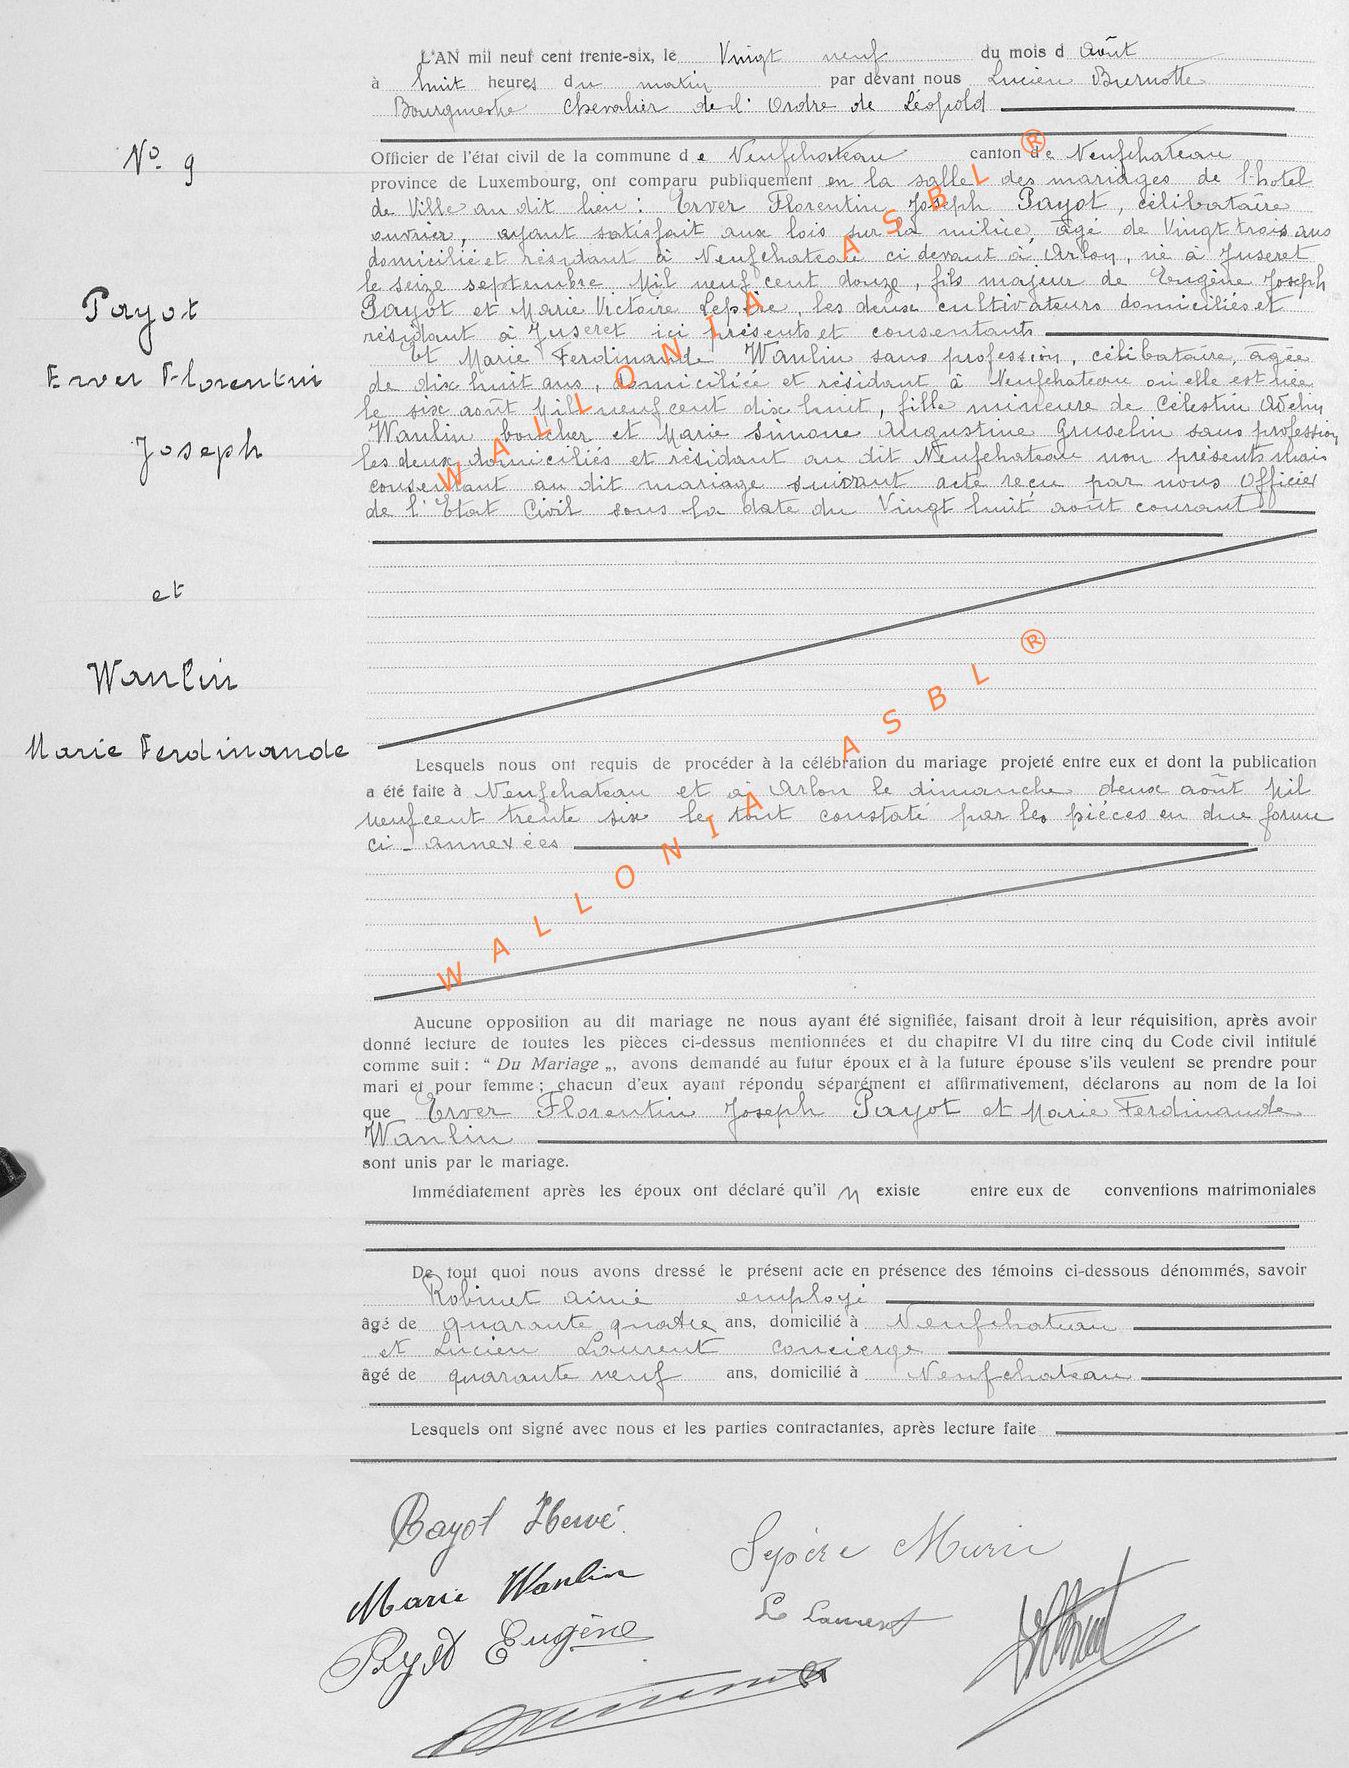 L'AN mil neuf cent trente-six, le Vingt neuf du mois d Août
à huit heures du matin par devant nous Lucien Burnotte
Bourgmestre Chevalier de l'Ordre de Léopold
Nº 9
Officier de l'état civil de la commune de Neufchateau canton de Neufchateau
province de Luxembourg, ont comparu publiquement en la salle des mariages de l'hotel
de Ville au dit lieu : Erver Florentin Joseph Payot, célibataire
ouvrier, ayant satisfait aux lois sur la milice, âgé de Vingt trois ans
domicilié et résidant à Neufchateau ci devant à Arlon, né à Juseret
le seize septembre Mil neuf cent douze, fils majeur de Eugène Joseph
Payot et Marie Victoire Lepère, les deux cultivateurs domiciliés et
résidant à Juseret ici présents et consentants
Et Marie Ferdinande Wanlin sans profession, célibataire, âgée
de dix huit ans, domiciliée et résidant à Neufchateau où elle est née
le six août Mil neuf cent dix huit, fille mineure de Célestin Adelin
Wanlin boucher et Marie Simone Augustine Gruselin sans profession
les deux domiciliés et résidant au dit Neufchateau non présents mais
consentant au dit mariage suivant acte reçu par nous Officier
de l'Etat Civil sous la date du Vingt huit août courant
Payot
Erver Florentin
Joseph
et
Wanlin
Marie Ferdinande
Lesquels nous ont requis de procéder à la célébration du mariage projeté entre eux et dont la publication
a été faite à Neufchateau et à Arlon le dimanche deux août Mil
neuf cent trente six le tout constaté par les pièces en due forme
ci-annexées
Aucune opposition au dit mariage ne nous ayant été signifiée, faisant droit à leur réquisition, après avoir
donné lecture de toutes les pièces ci-dessus mentionnées et du chapitre VI du titre cinq du Code civil intitulé
comme suit : “ Du Mariage „, avons demandé au futur époux et à la future épouse s'ils veulent se prendre pour
mari et pour femme ; chacun d'eux ayant répondu séparément et affirmativement, déclarons au nom de la loi
que Erver Florentin Joseph Payot et Marie Ferdinande
Wanlin
sont unis par le mariage.
Immédiatement après les époux ont déclaré qu'il n existe entre eux de conventions matrimoniales
De tout quoi nous avons dressé le présent acte en présence des témoins ci-dessous dénommés, savoir
Robinet aimé employé
âgé de quarante quatre ans, domicilié à Neufchateau
et Lucien Laurent concierge
âgé de quarante neuf ans, domicilié à Neufchateau
Lesquels ont signé avec nous et les parties contractantes, après lecture faite
Payot Hervé
Lepère Marie
Marie Wanlin
L Laurent
Payot Eugène
WALLONIA ASBL ®
WALLONIA ASBL ®